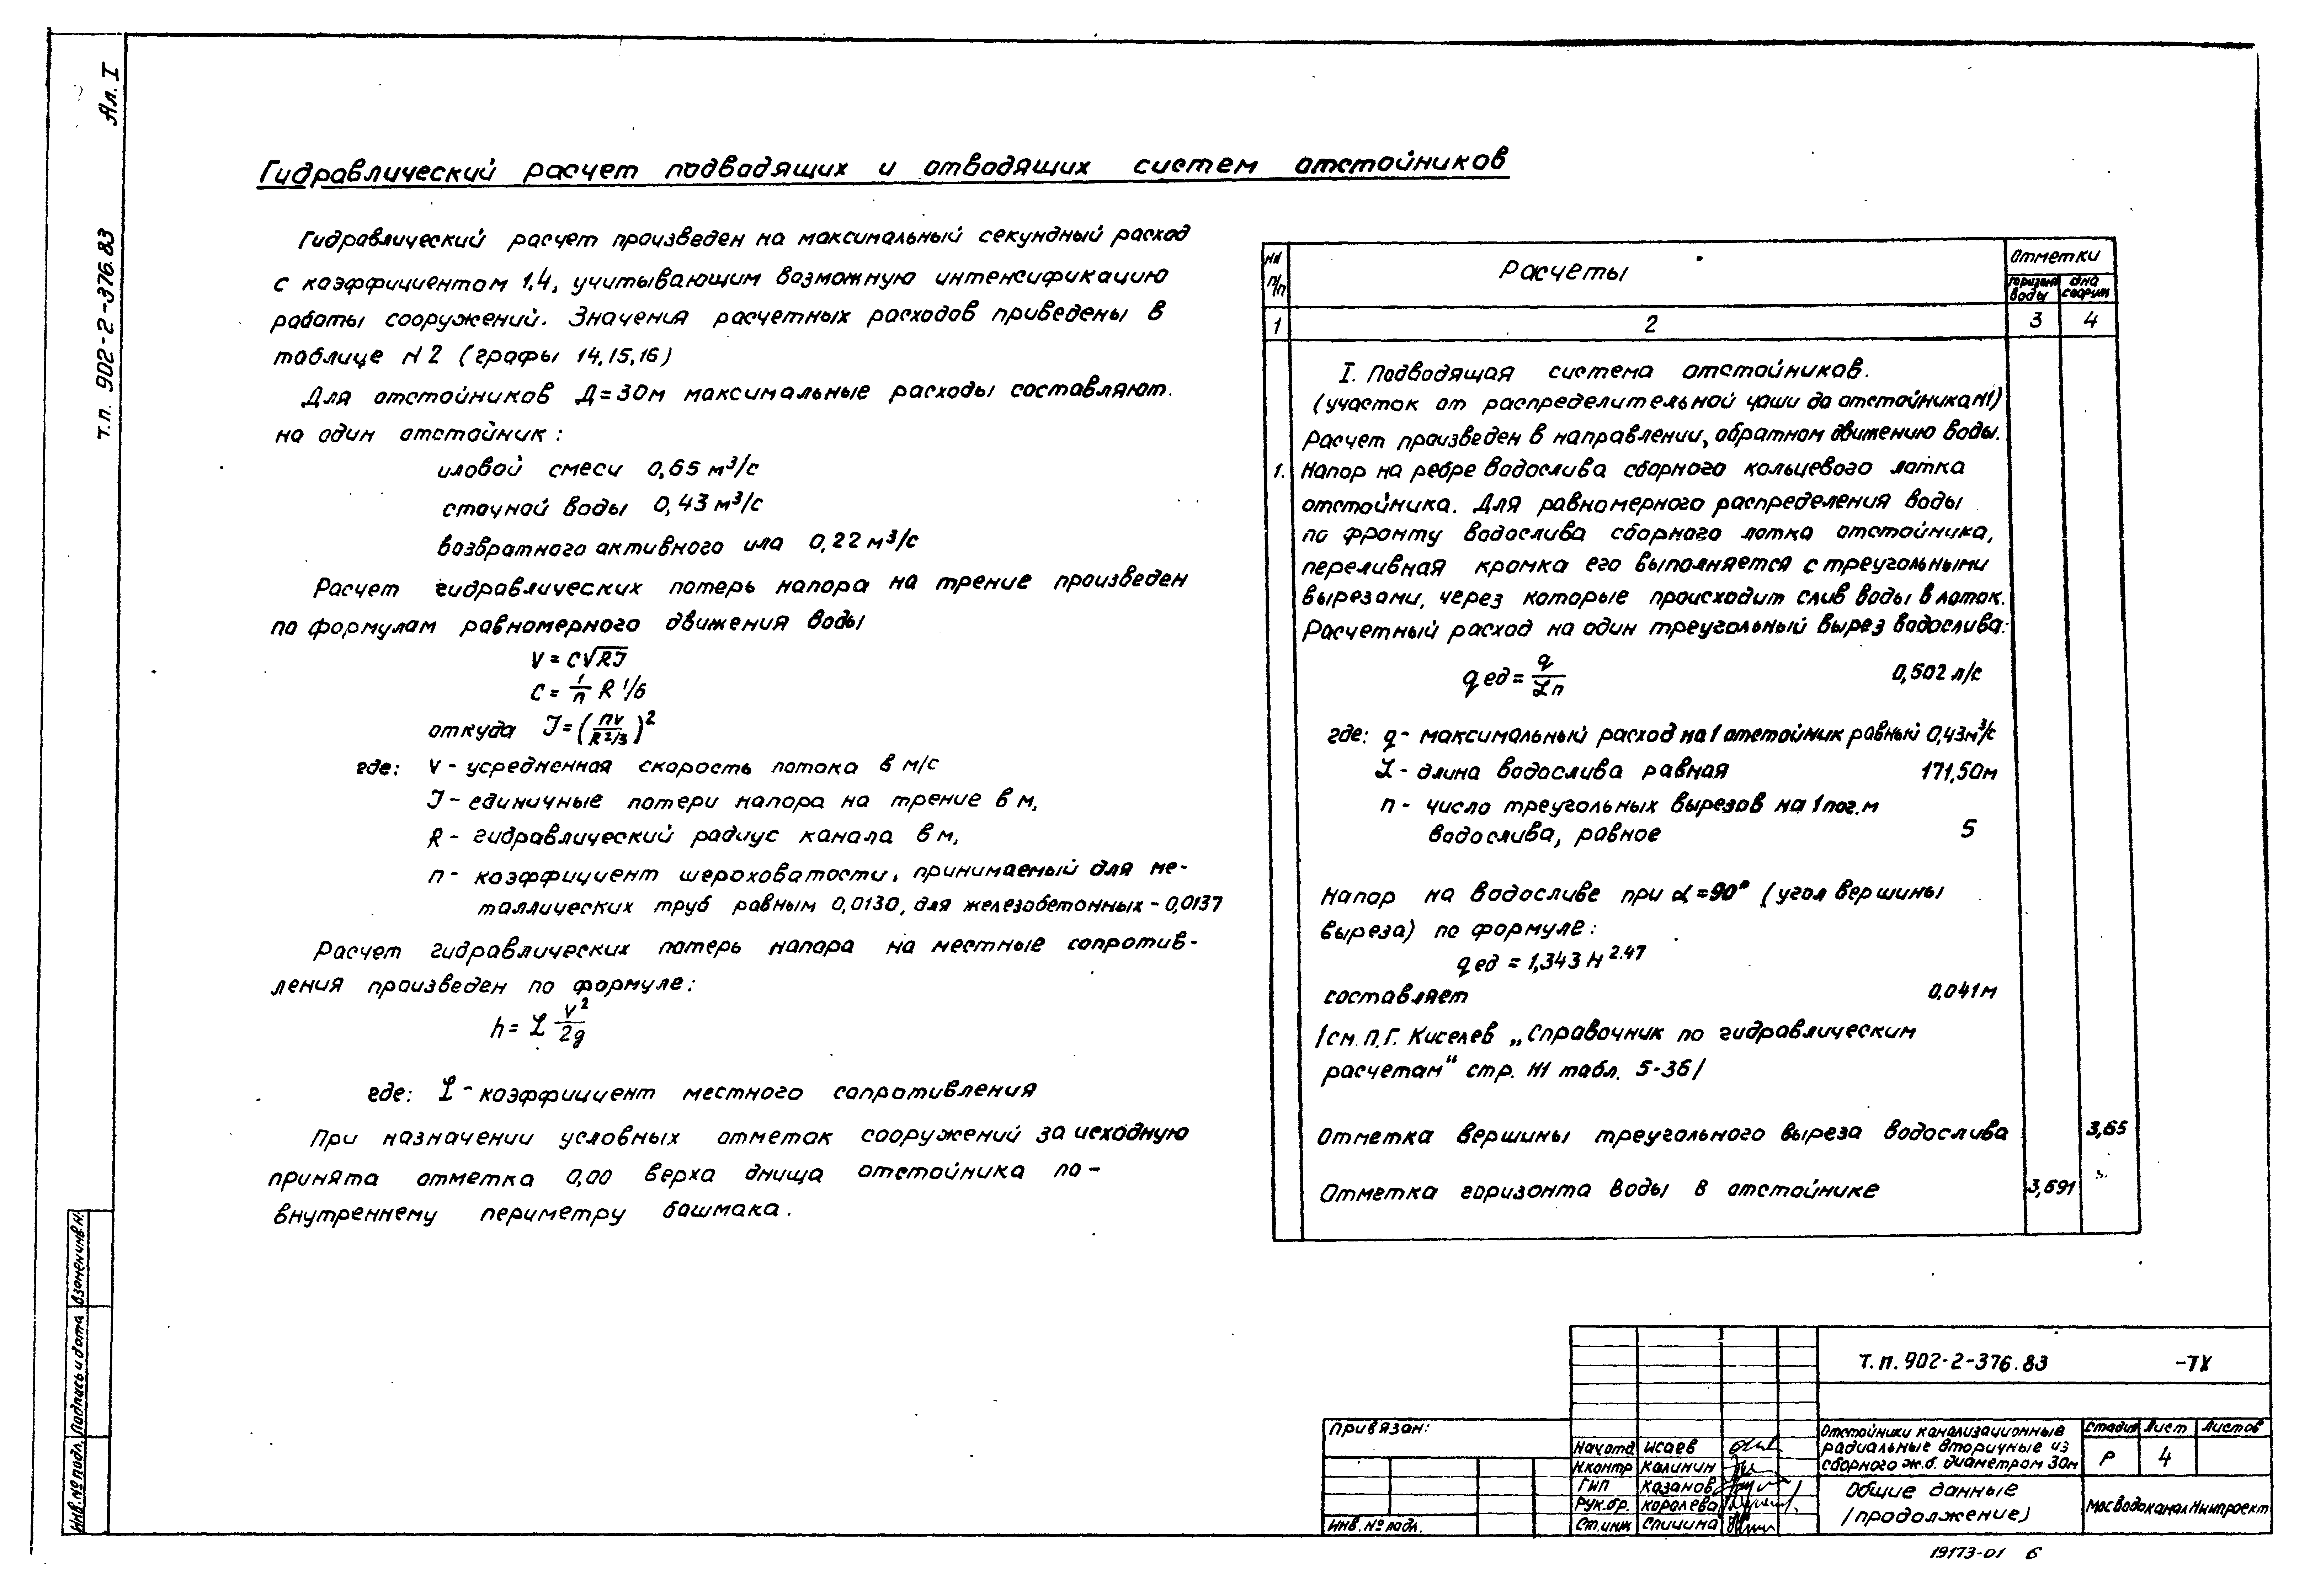 Ал. I
т.п. 902-2-376.83
Гидравлический расчет подводящих и отводящих систем отстойников
Гидравлический расчет произведен на максимальный секундный расход
с коэффициентом 1.4, учитывающим возможную интенсификацию
работы сооружений. Значения расчетных расходов приведены в
таблице N 2 (графы 14,15,16)
Для отстойников Д=30м максимальные расходы составляют.
на один отстойник:
иловой смеси 0,65 м³/с
сточной воды 0,43 м³/с
возвратного активного ила 0,22 м³/с
Расчет гидравлических потерь напора на трение произведен
по формулам равномерного движения воды
V = C√RJ
C = 1/n R 1/6
откуда J = (nv/R 2/3)²
где: V - усредненная скорость потока в м/с
J - единичные потери напора на трение в м,
R - гидравлический радиус канала в м,
n - коэффициент шероховатости, принимаемый для ме-
таллических труб равным 0,0130, для железобетонных - 0,0137
Расчет гидравлических потерь напора на местные сопротив-
ления произведен по формуле:
h = ℒ V²/2g
где: ℒ - коэффициент местного сопротивления
При назначении условных отметок сооружений за исходную
принята отметка 0,00 верха днища отстойника по-
внутреннему периметру башмака.
NN п/п
Расчеты
Отметки
горизонт воды
дна сооруж.
1 2 3 4
I. Подводящая система отстойников.
(участок от распределительной чаши до отстойника N1)
Расчет произведен в направлении, обратном движению воды.
1. Напор на ребре водослива сборного кольцевого лотка
отстойника. Для равномерного распределения воды
по фронту водослива сборного лотка отстойника,
переливная кромка его выполняется с треугольными
вырезами, через которые происходит слив воды в лоток.
Расчетный расход на один треугольный вырез водослива:
q ед = q/ℒn 0,502 л/с
где: q - максимальный расход на 1 отстойник равный 0,43м³/с
ℒ - длина водослива равная 171,50м
n - число треугольных вырезов на 1 пог.м
водослива, равное 5
Напор на водосливе при α = 90° (угол вершины
выреза) по формуле:
q ед = 1,343 H 2.47
составляет 0,041м
/см. П.Г. Киселев „Справочник по гидравлическим
расчетам“ стр. 111 табл. 5-36/
Отметка вершины треугольного выреза водослива 3,65
Отметка горизонта воды в отстойнике 3,691
Инв.№ подл. Подпись и дата Взамен инв.н.
Привязан:
Инв. № подл.
Нач.отд Исаев
Н.контр Калинин
ГИП Казанов
Рук.бр. Королева
Ст.инж Спицина
Т.п. 902-2-376.83 -ТХ
Отстойники канализационные
радиальные вторичные из
сборного ж.б. диаметром 30м
Стадия Лист Листов
Р 4
Общие данные
/продолжение/
МосводоканалНИИпроект
19173-01 6